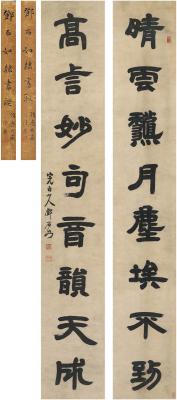 晴雲龝月塵埃不到
高言妙句音韻天成
完白山人鄧石如
鄧石如隸書
鄧石如隸書